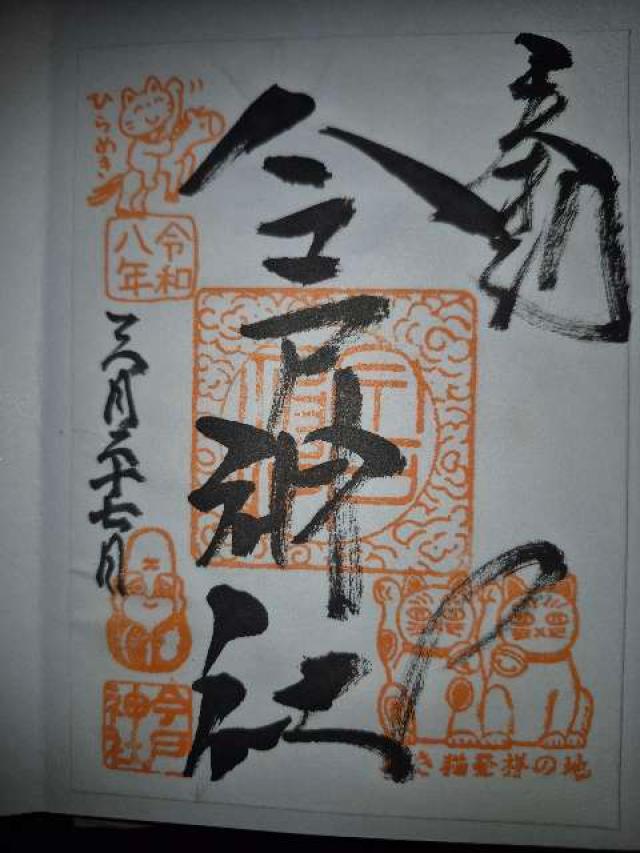 奉拝
今戸神社
招き猫発祥の地
ひらめき
令和
八年
三月二十七日
今戸
神社